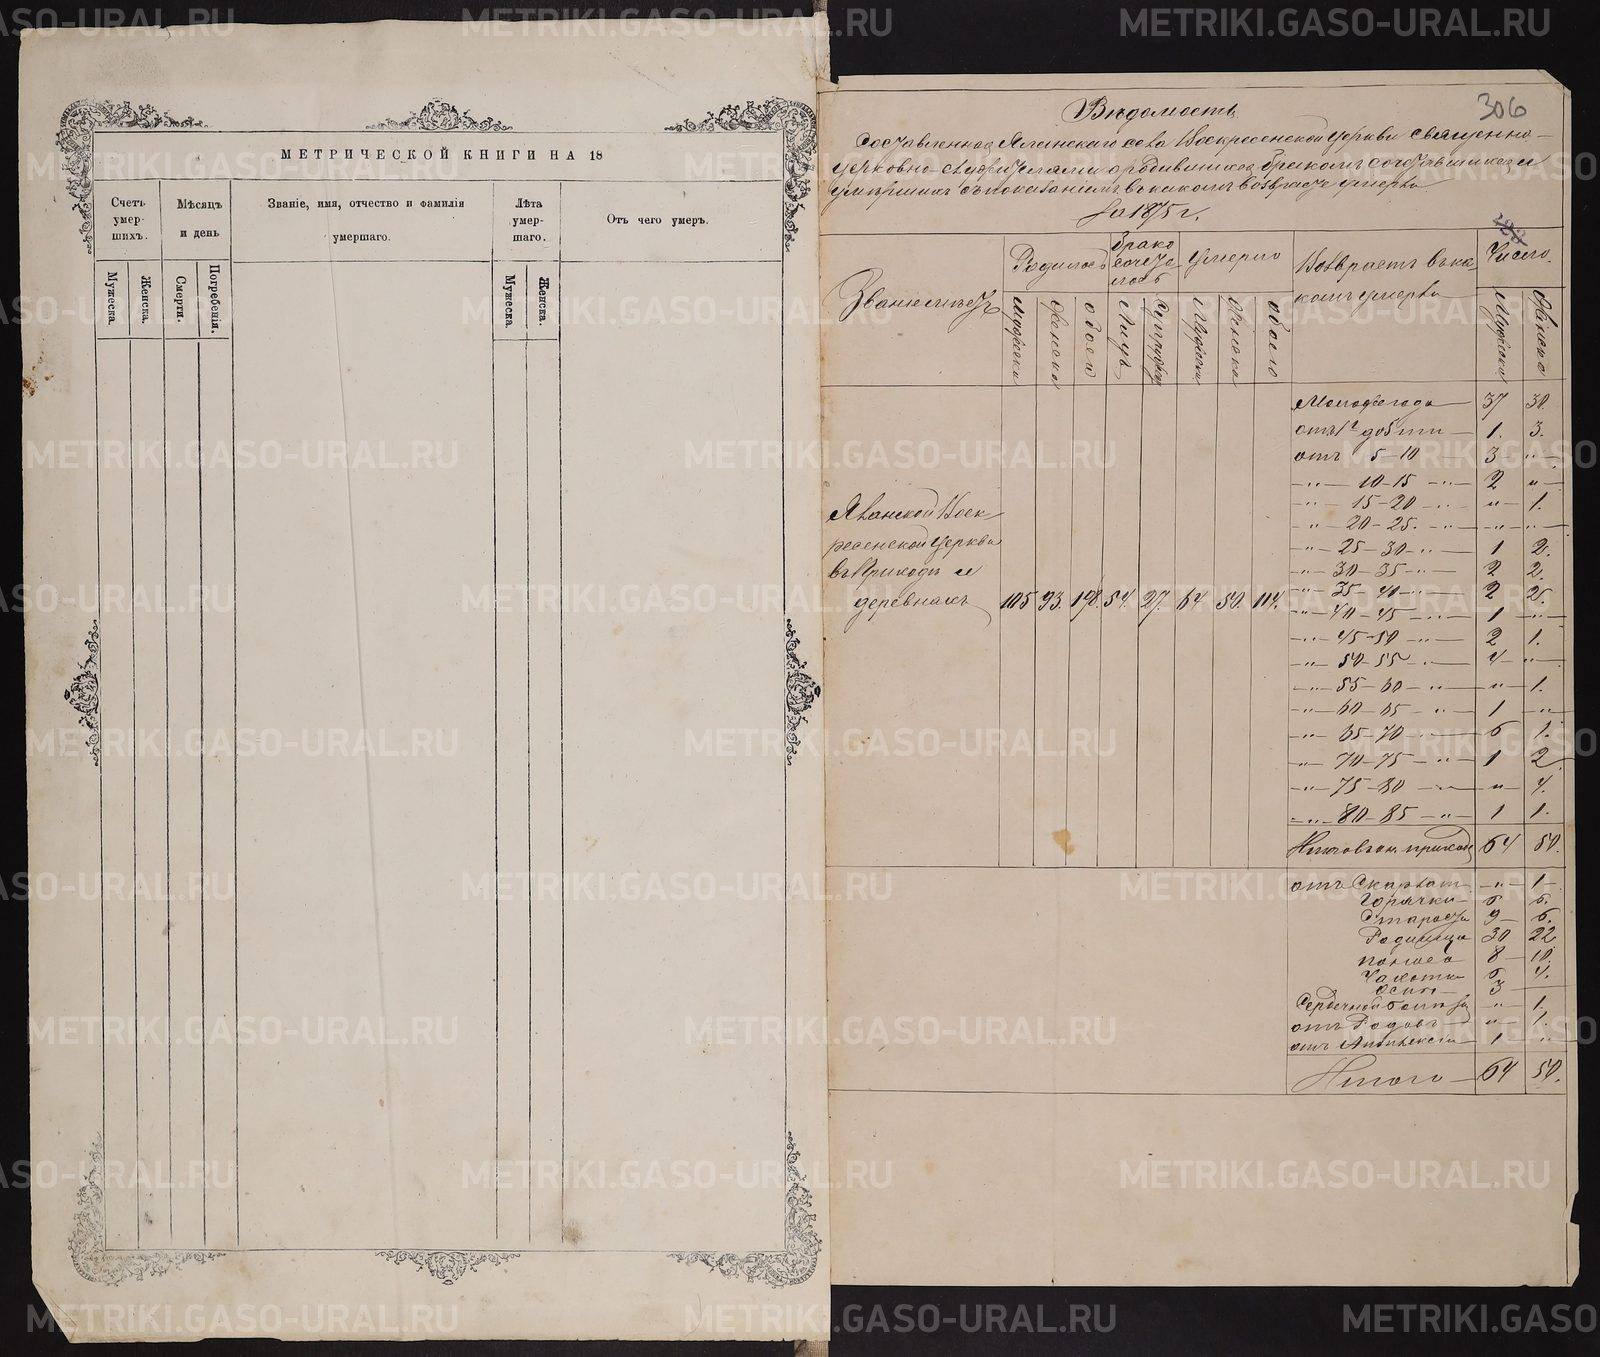 МЕТРИЧЕСКОЙ КНИГИ НА 18
Счетъ умер- шихъ.
Мѣсяцъ и день
Званіе, имя, отчество и фамилія умершаго.
Лѣта умер- шаго.
Отъ чего умеръ.
Мужеска.
Женска.
Смерти.
Погребенія.
Мужеска.
Женска.
306
Вѣдомость
Составленная села Воскресенской церкви священно-
церковно-служителями о родившихся бракомъ сочетавшихся и
умершихъ съ показаніемъ въ какомъ возрастѣ умерли
за 1875 г.
Званіе мѣстъ
Родилось
Брако сочета лось
Умерло
Возврастъ въ ка
комъ умерли
Число.
Мужеска
Женска
обоего
Лицъ
Мужеска
Женска
обоего
Мужеска
Женска
Воск
ресенской церкви
въ Приходѣ и
деревнахъ 105 93. 198. 54. 27. 64 50. 114.
Моложе года 37 30.
отъ 1 г до 5 ти 1. 3.
отъ 5-10 3 -"-
-"- 10-15 -"- 2 "
-"- 15-20 " 1.
-"- 20-25. -"- -"- -"-
-"- 25-30 -"- 1 2.
-"- 30-35 -"- 2 2.
-"- 35-40 -"- 2 2.
-"- 40-45 -"- 1 -"-
-"- 45-50 -"- 2 1.
-"- 50-55 -"- 4 -"-
-"- 55-60 -"- " 1.
-"- 60-65 -"- 1 -"-
-"- 65-70 -"- 6 1.
-"- 70-75 -"- 1 2.
-"- 75-80 -"- " 4.
-"- 80-85 -"- 1 1.
Итого въ приходѣ 64 50.
отъ Скарлат. -"- 1
Горячки 6. 6.
Старости 9 6.
Родимца 30 22
поноса 8 10.
Чахотки 6 4.
оспы 3
Сердечной болѣзн " 1.
отъ Родовъ " 1.
отъ Апоплексіи 1 "
Итого 64 50.
METRIKI.GASO-URAL.RU